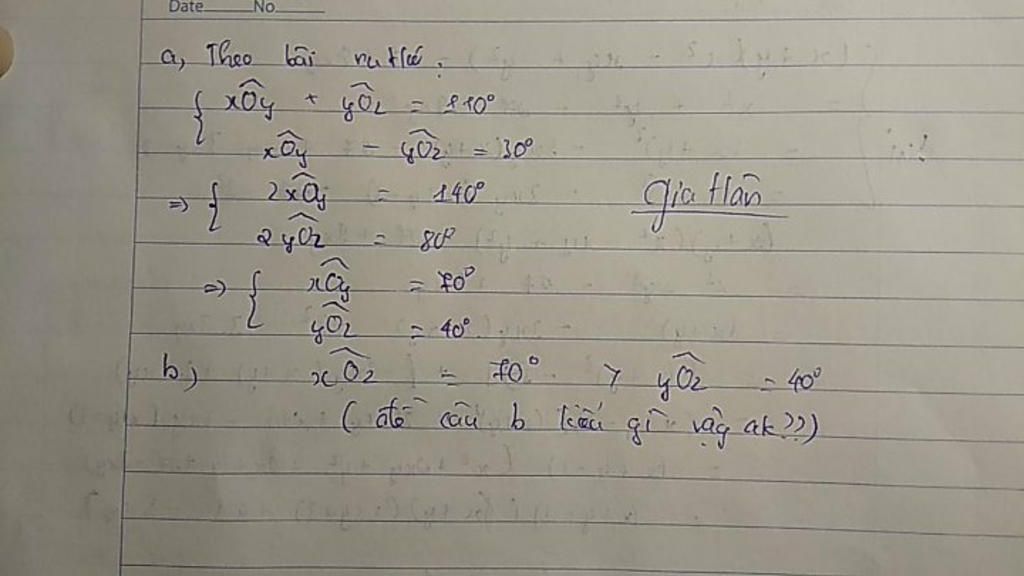 Date No
a, Theo bài ra t/có:
{ xÔy + yÔz = 110°
xÔy - yÔz = 30°
=> { 2xÔy = 140°
2yÔz = 80°
Gia Hân
=> { xÔy = 70°
yÔz = 40°
b, xÔz = 70° > yÔz = 40°
(đề câu b kiểu gì vậy ak??)